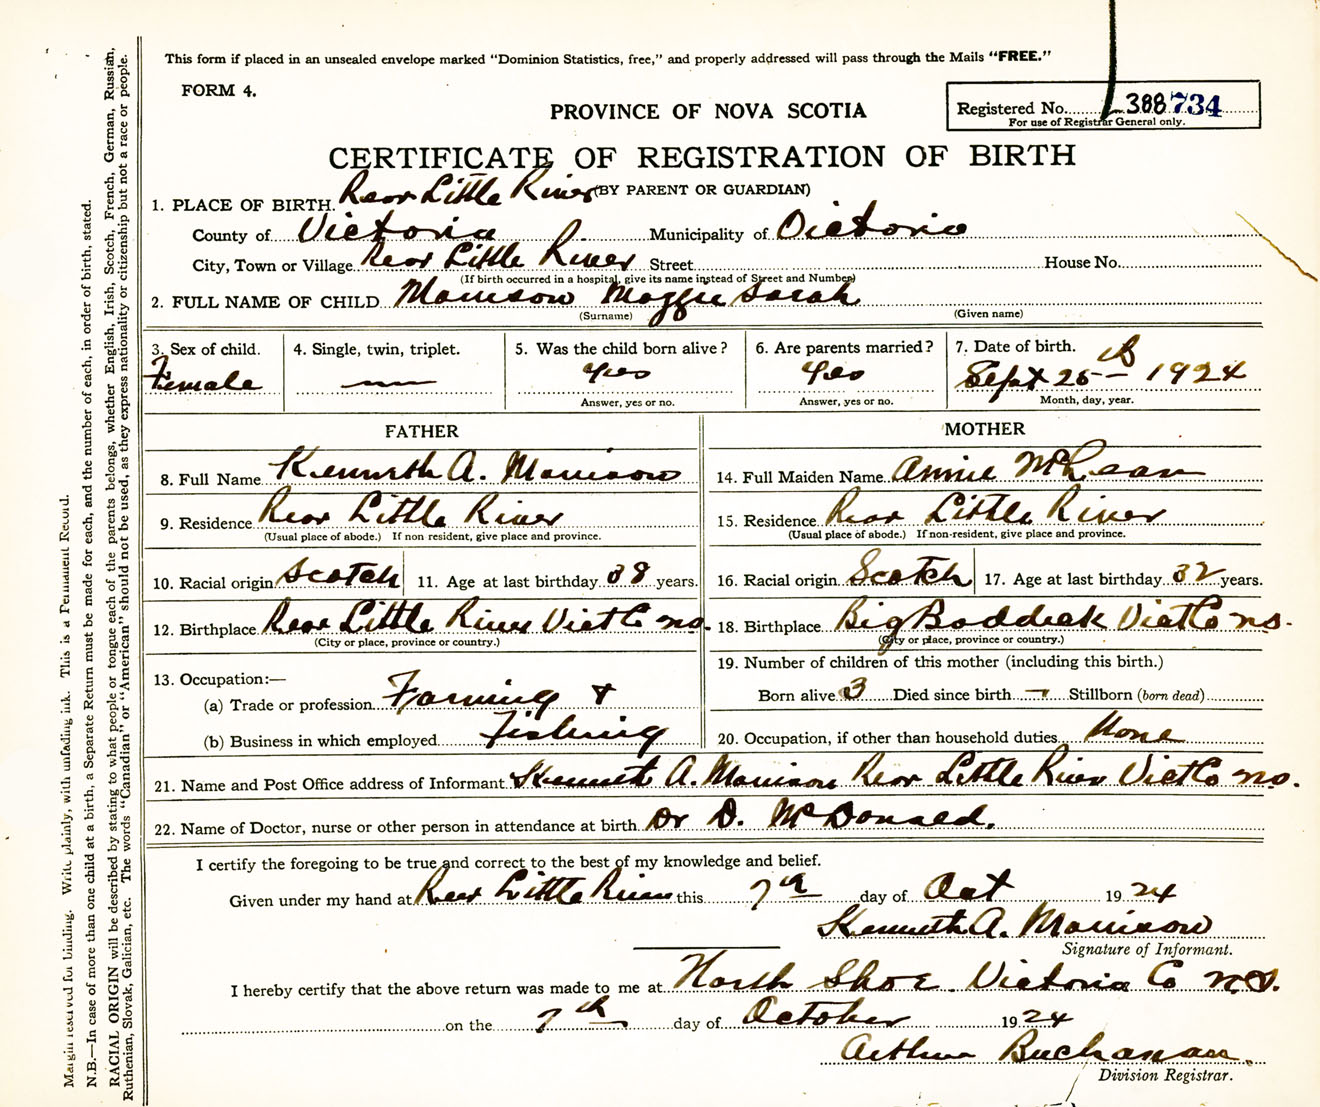 This form if placed in an unsealed envelope marked "Dominion Statistics, free," and properly addressed will pass through the Mails "FREE."
FORM 4.
PROVINCE OF NOVA SCOTIA
Registered No. 388734
For use of Registrar General only.
CERTIFICATE OF REGISTRATION OF BIRTH
(BY PARENT OR GUARDIAN)
1. PLACE OF BIRTH. Rear Little River
County of Victoria Municipality of Victoria
City, Town or Village Rear Little River Street House No.
(If birth occurred in a hospital, give its name instead of Street and Number)
2. FULL NAME OF CHILD Morrison Maggie Sarah
(Surname) (Given name)
3. Sex of child. 4. Single, twin, triplet. 5. Was the child born alive? 6. Are parents married? 7. Date of birth.
Female — yes yes Sept 25th 1924
Answer, yes or no. Answer, yes or no. Month, day, year.
FATHER MOTHER
8. Full Name Kenneth A. Morrison 14. Full Maiden Name Annie McLean
9. Residence Rear Little River 15. Residence Rear Little River
(Usual place of abode.) If non resident, give place and province. (Usual place of abode.) If non-resident, give place and province.
10. Racial origin Scotch 11. Age at last birthday 38 years. 16. Racial origin Scotch 17. Age at last birthday 32 years.
12. Birthplace Rear Little River Vict Co N.S. 18. Birthplace Big Baddeck Vict Co N.S.
(City or place, province or country.) (City or place, province or country.)
13. Occupation:— 19. Number of children of this mother (including this birth.)
(a) Trade or profession Farming + Born alive 3 Died since birth — Stillborn (born dead)
(b) Business in which employed Fishing 20. Occupation, if other than household duties. None
21. Name and Post Office address of Informant Kenneth A. Morrison Rear Little River Vict Co N.S.
22. Name of Doctor, nurse or other person in attendance at birth Dr D. McDonald.
I certify the foregoing to be true and correct to the best of my knowledge and belief.
Given under my hand at Rear Little River this 7th day of Oct 1924
Kenneth A. Morrison
Signature of Informant.
I hereby certify that the above return was made to me at North Shore Victoria Co N.S.
on the 7th day of October 1924
Arthur Buchanan.
Division Registrar.
Margin reserved for binding. Write plainly, with unfading ink. This is a Permanent Record.
N.B.—In case of more than one child at a birth, a Separate Return must be made for each, and the number of each, in order of birth, stated.
RACIAL ORIGIN will be described by stating to what people or tongue each of the parents belongs, whether English, Irish, Scotch, French, German, Russian,
Ruthenian, Slovak, Galician, etc. The words "Canadian" or "American" should not be used, as they express nationality or citizenship but not a race or people.